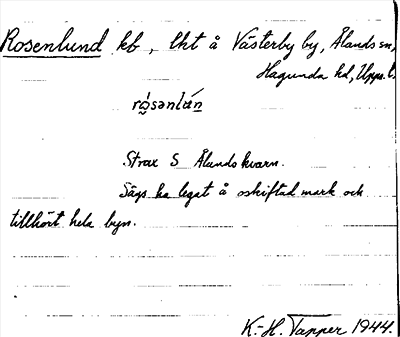 Rosenlund kb, lht å Västerby by, Ålands sn,
Hagunda hd, Upps. l.
Strax S Ålands kvarn.
Sägs ha legat å oskiftad mark och
tillhört hela byn.
K.-H. Tapper 1944.